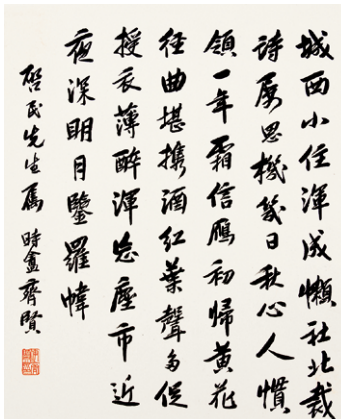 城西小住渾成懶社北裁
詩屡息機幾日秋心人慣
領一年霜信鴈初歸黃花
徑曲堪攜酒紅葉聲多促
授衣薄醉渾忘塵市近
夜深明月鑒羅幃
啓民先生属 時盦齊賢